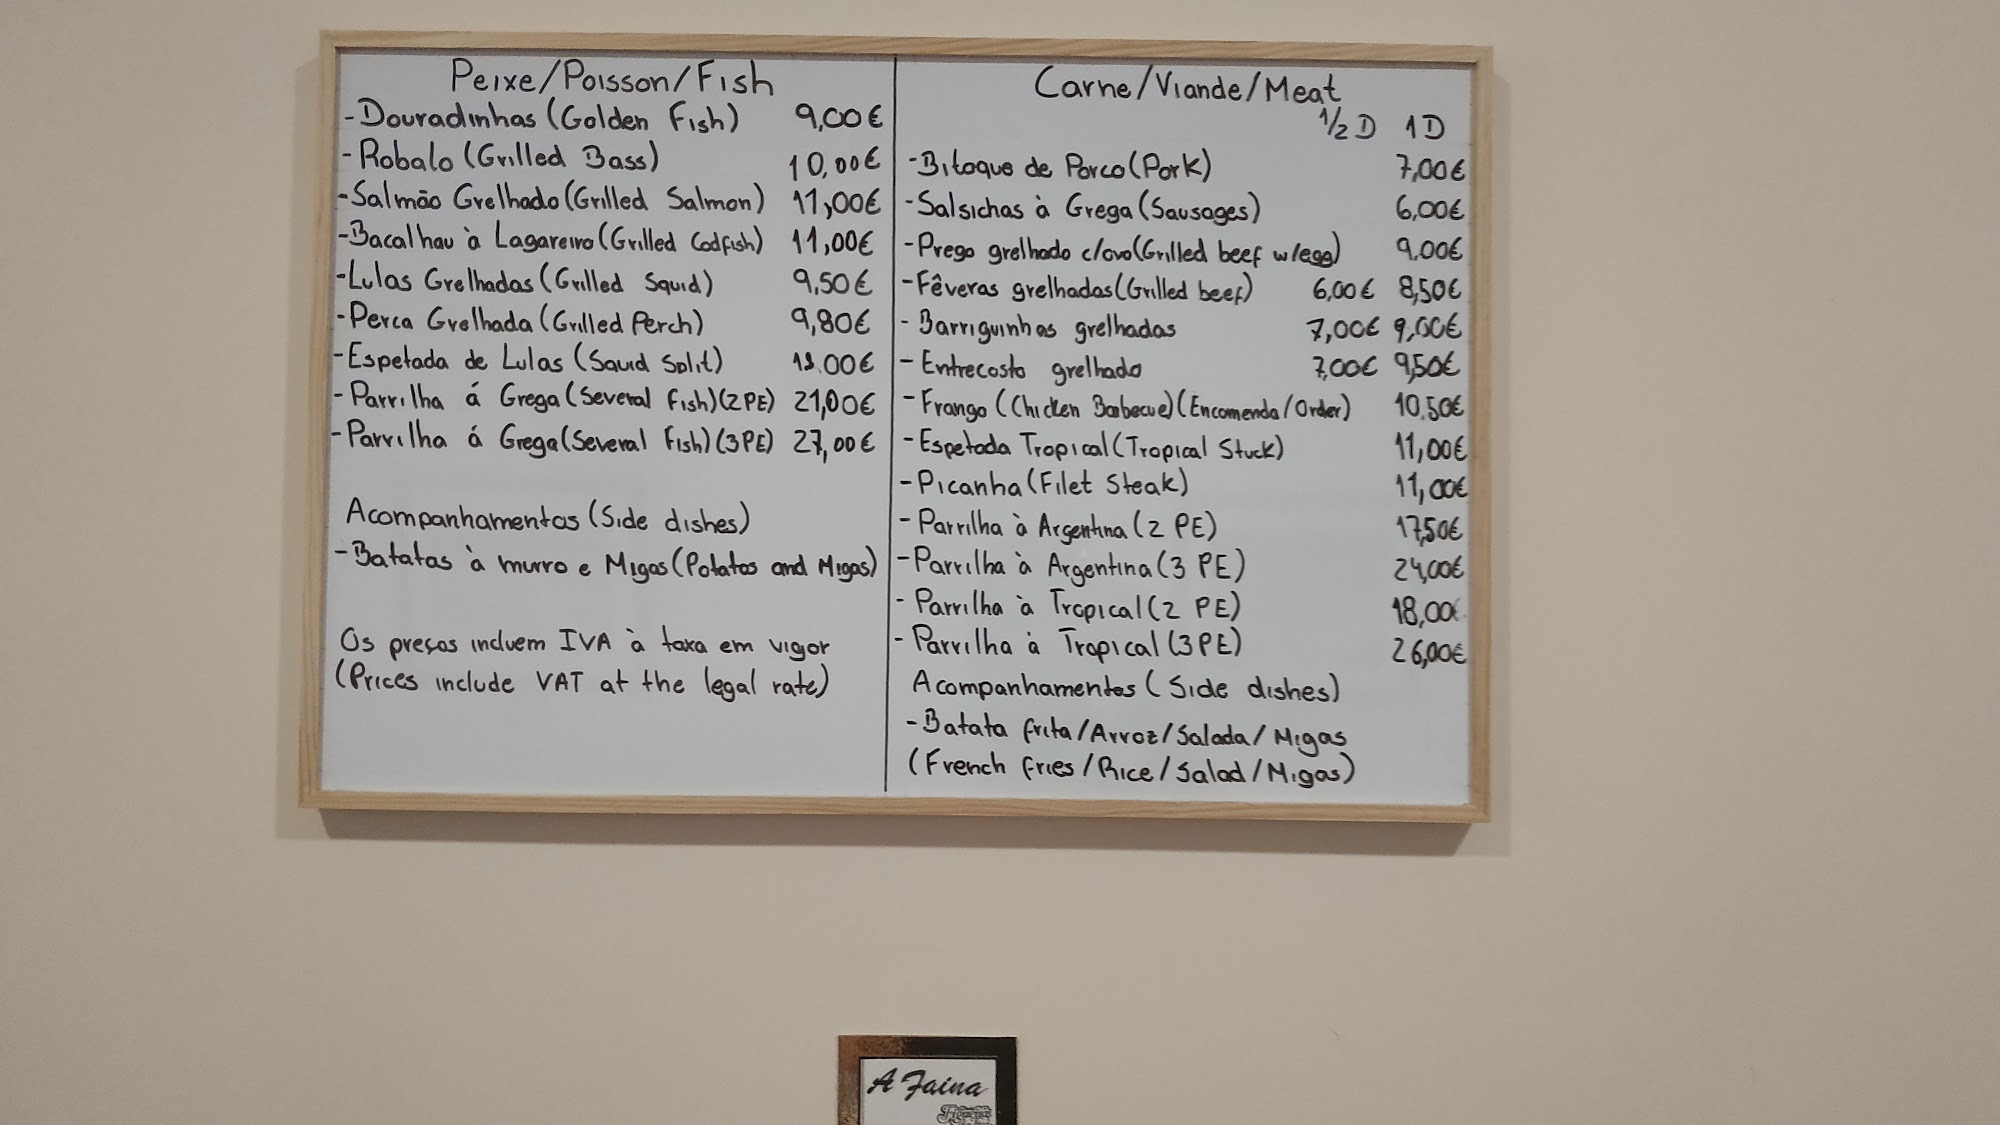 Peixe/Poisson/Fish
-Douradinhas (Golden Fish) 9,00€
-Robalo (Grilled Bass) 10,00€
-Salmão Grelhado (Grilled Salmon) 11,00€
-Bacalhau à Lagareiro (Grilled Codfish) 11,00€
-Lulas Grelhadas (Grilled Squid) 9,50€
-Perca Grelhada (Grilled Perch) 9,80€
-Espetada de Lulas (Squid Split)
-Parrilha á Grega (Several Fish) (2PE) 21,00€
-Parrilha á Grega (Several Fish) (3PE) 27,00€
Acompanhamentos (Side dishes)
-Batatas à murro e Migas (Potatos and Migas)
Os preços incluem IVA à taxa em vigor
(Prices include VAT at the legal rate)
Carne/Viande/Meat
1/2 D 1 D
-Bitoque de Porco (Pork) 7,00€
-Salsichas à Grega (Sausages) 6,00€
-Prego grelhado c/ovo (Grilled beef w/egg) 9,00€
-Fêveras grelhadas (Grilled beef) 6,00€ 8,50€
-Barriguinhas grelhadas 7,00€ 9,00€
-Entrecosto grelhado 7,00€ 9,50€
-Frango (Chicken Barbecue) (Encomenda/Order) 10,50€
-Espetada Tropical (Tropical Stuck) 11,00€
-Picanha (Filet Steak) 11,00€
-Parrilha à Argentina (2 PE) 17,50€
-Parrilha à Argentina (3 PE) 24,00€
-Parrilha à Tropical (2 PE) 18,00€
-Parrilha à Tropical (3PE) 26,00€
Acompanhamentos (Side dishes)
-Batata frita/Arroz/Salada/Migas
(French fries/Rice/Salad/Migas)
A Faina